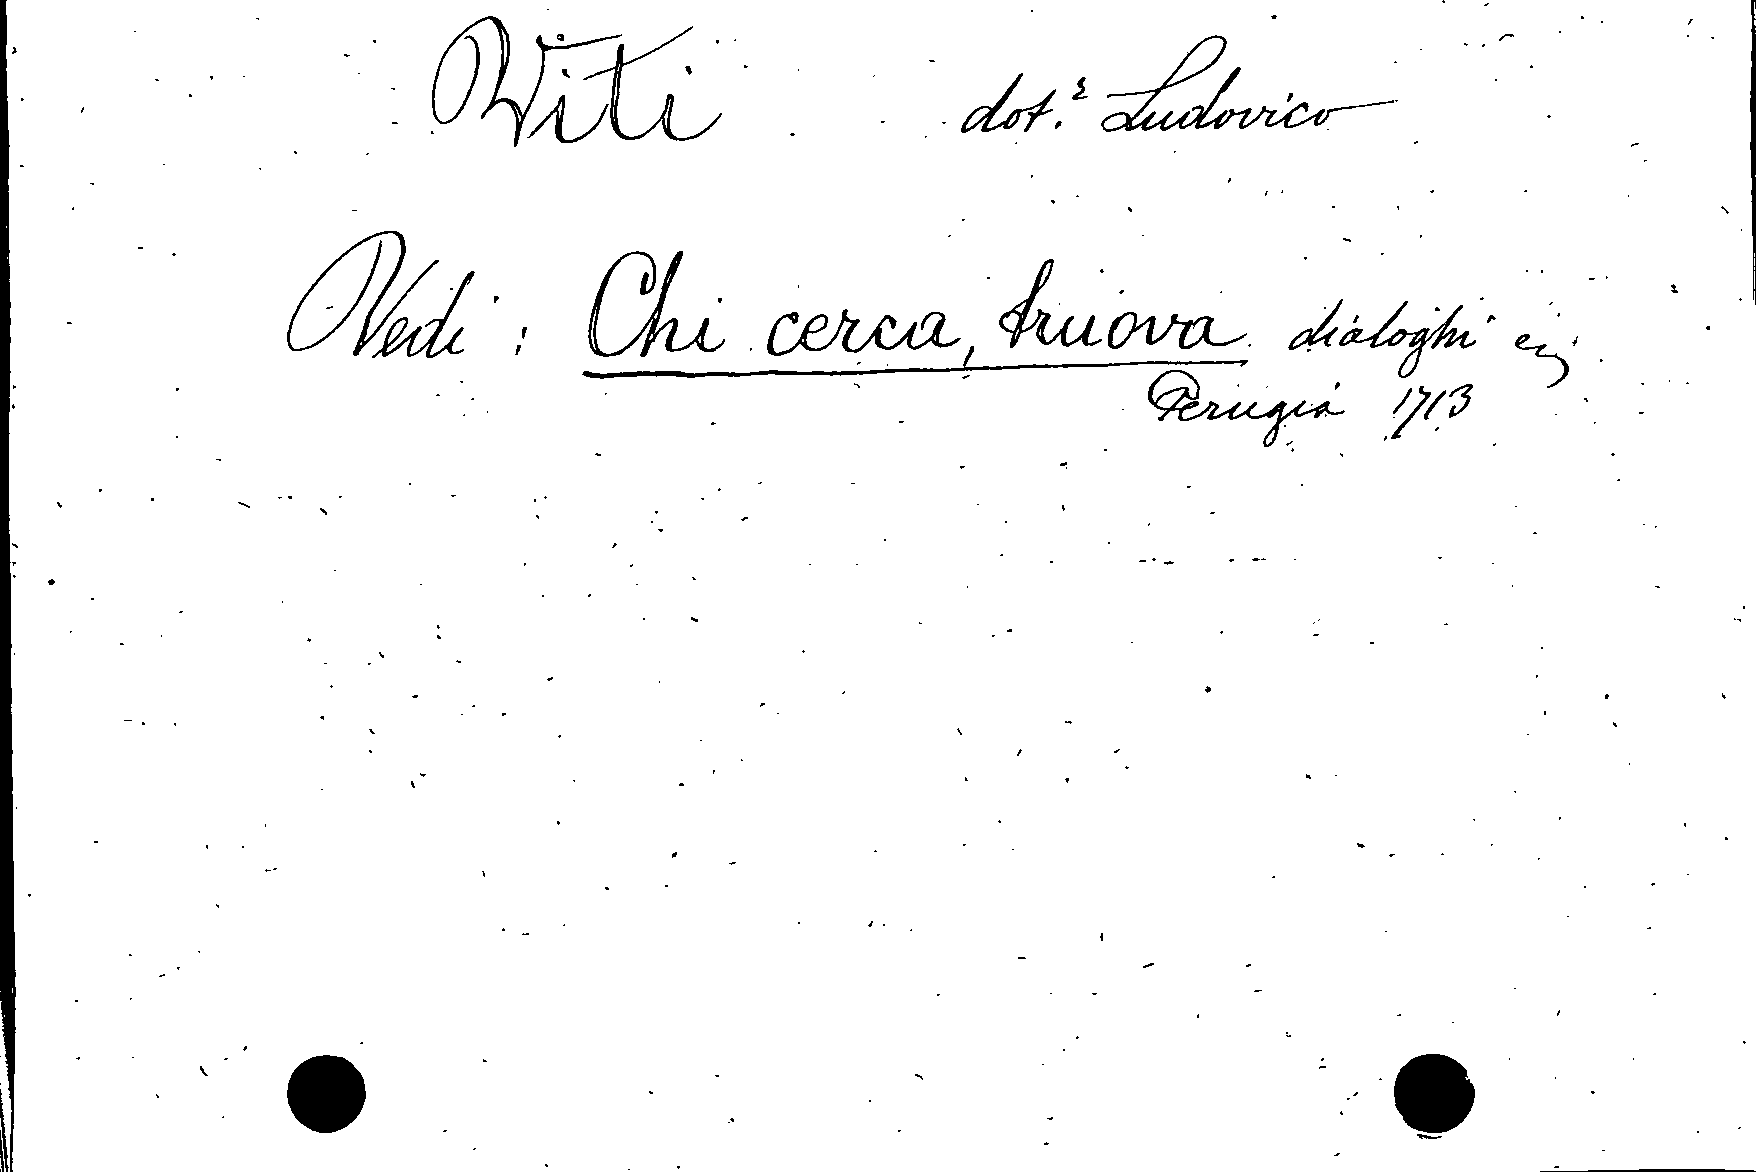 Viti dot.r Ludovico
Vedi: Chi cerca, truova dialoghi
Perugia 1713